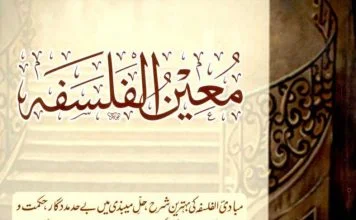 معین الفلسفہ
مبادئ الفلسفہ کی بہترین شرح، حل میبذی میں بے حد مددگار، حکمت و